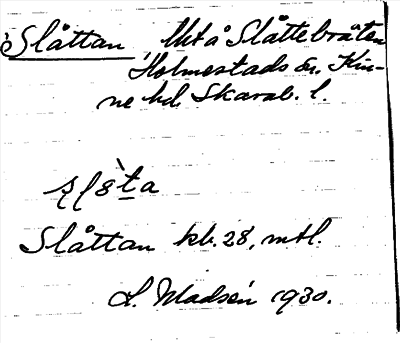 Slåttan Utå Slåttebråten
Holmestads sn. Kin-
ne hd. Skarab. l.
Slåttan kb. 28, mtl.
L. Madsén 1930.